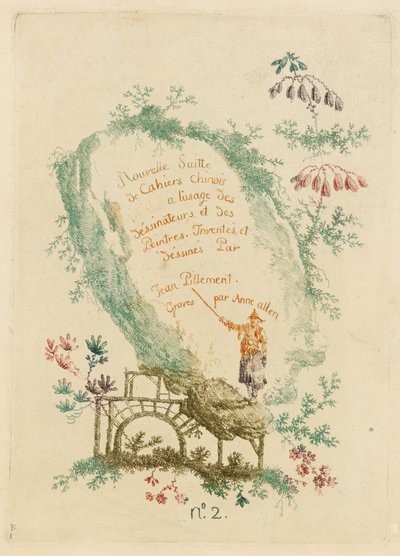 Nouvelle Suitte
de Cahiers Chinois
a l'usage des
dessinateurs, et des
Peintres. Inventés, et
dessinés Par
Jean Pillement.
Gravés par Anne allen
nº. 2.